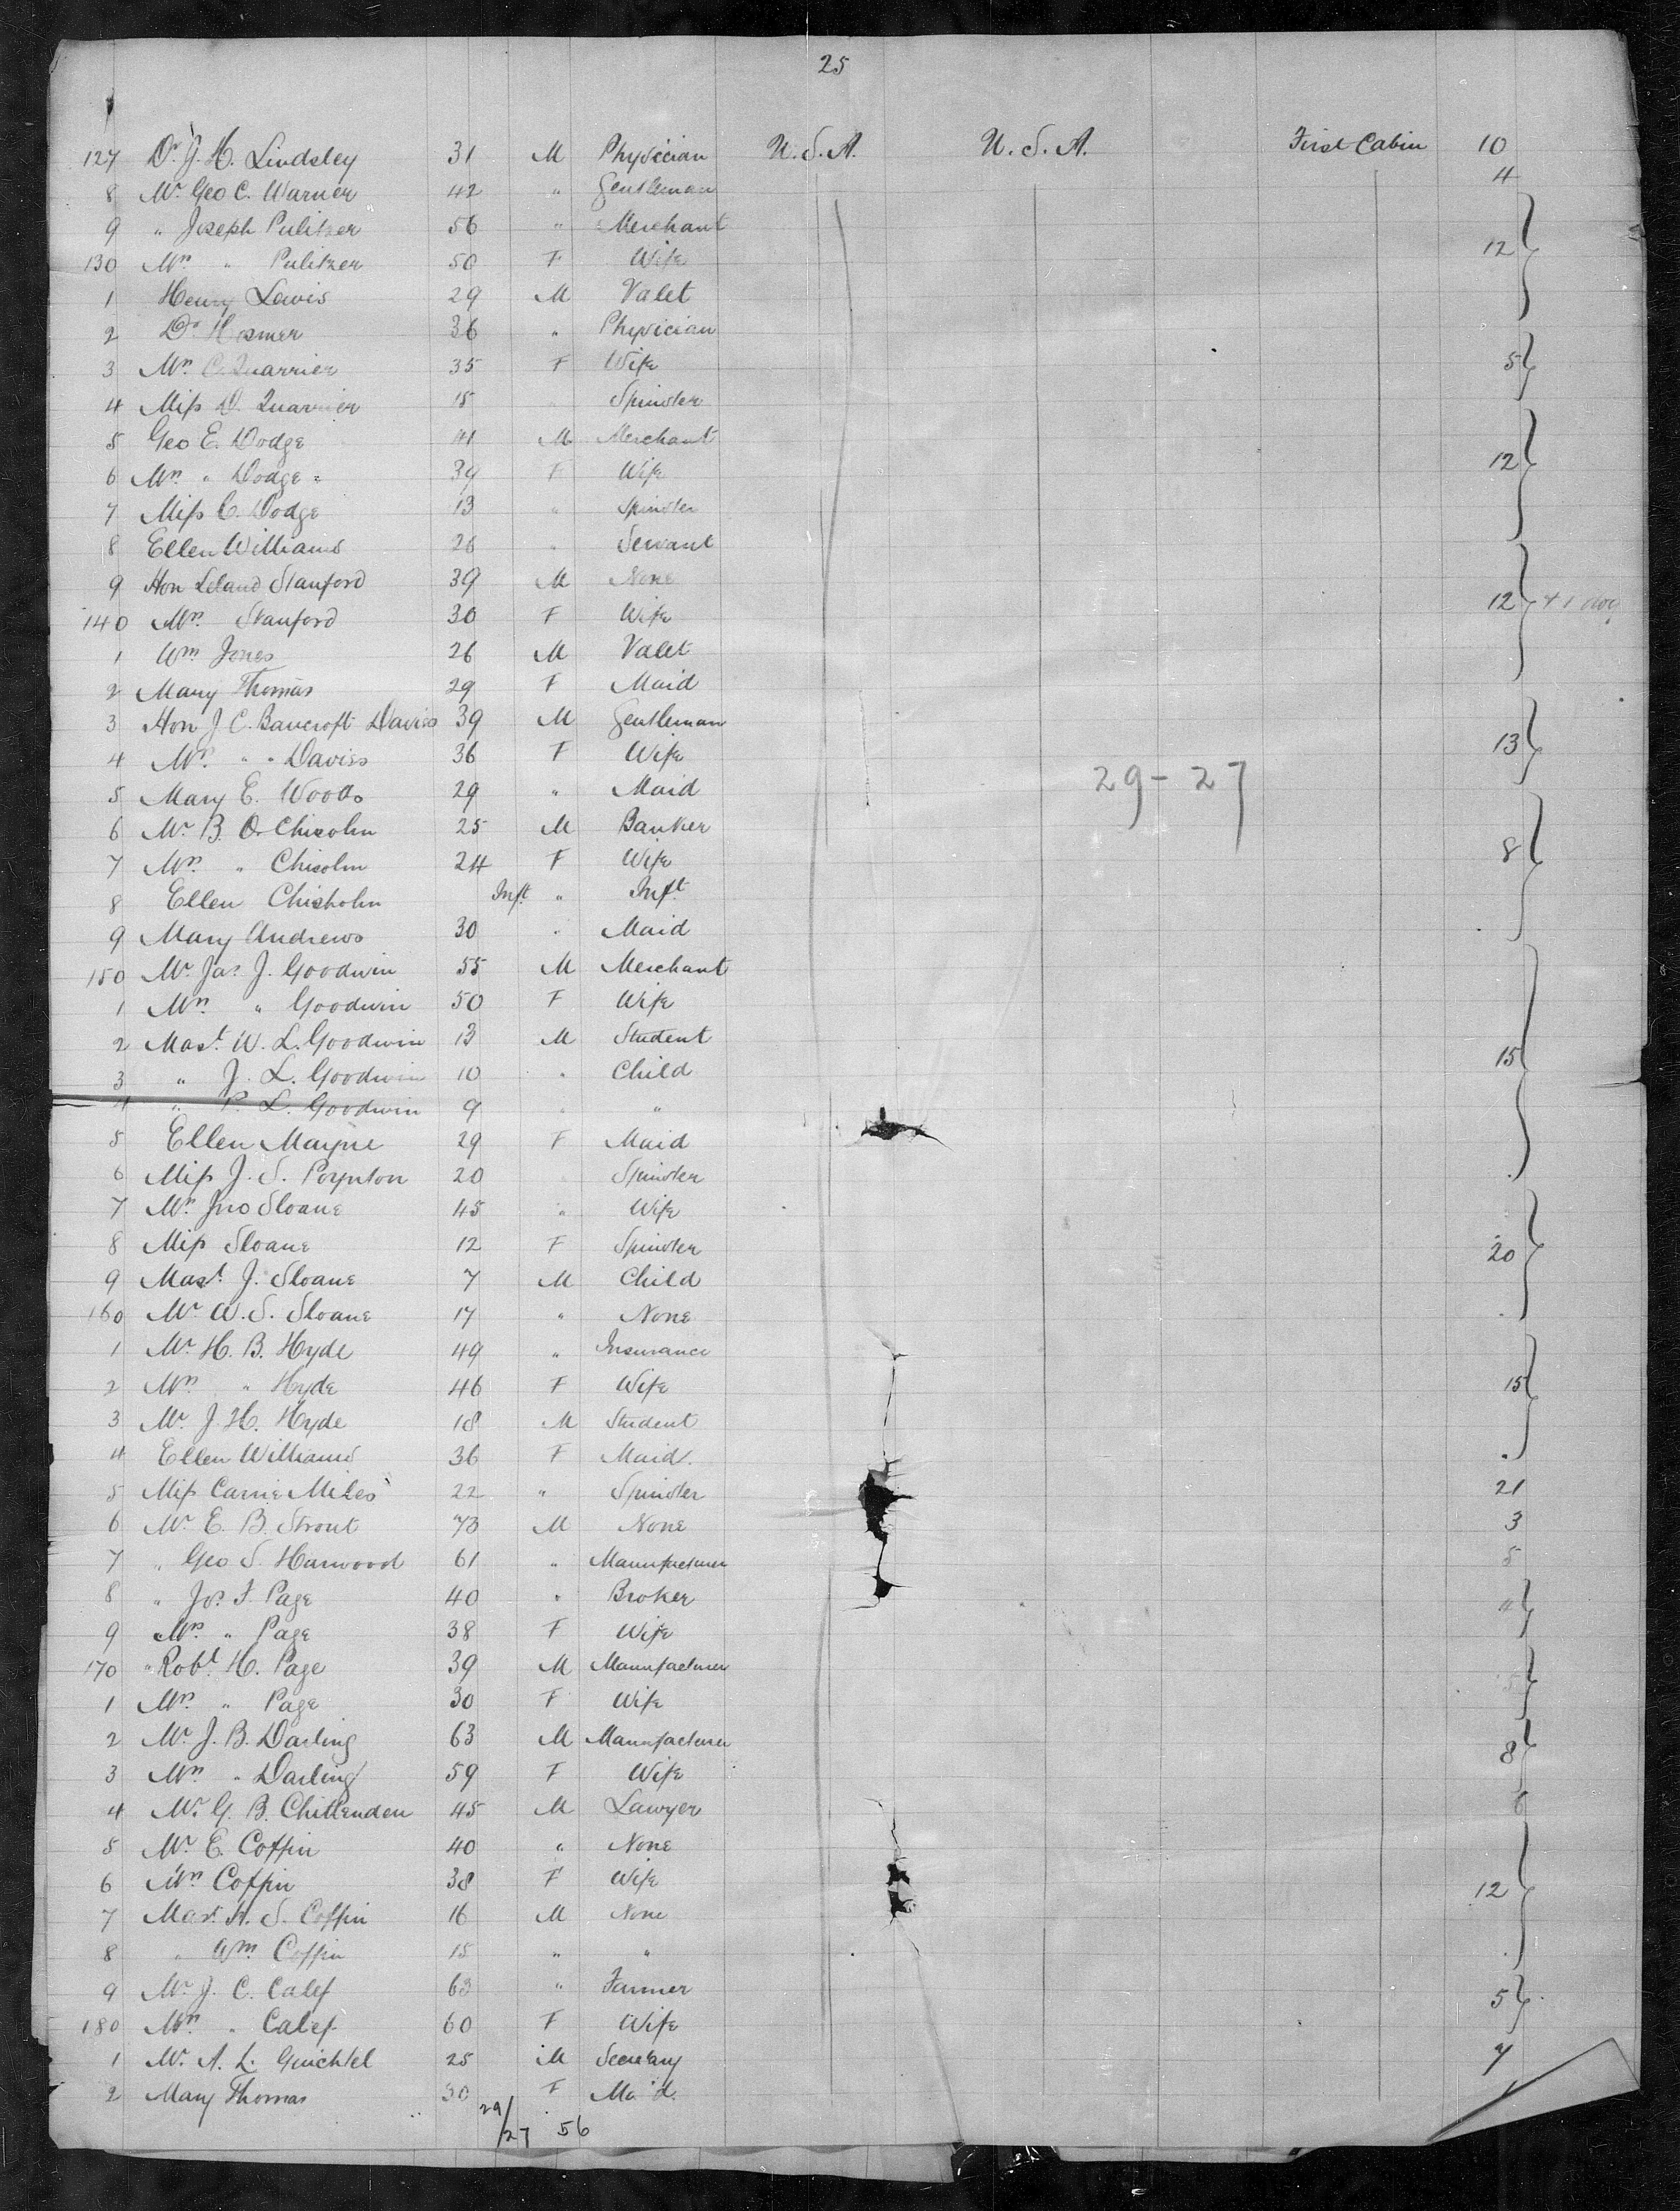 25
127 Dr. J. H. Lindsley 31 M Physician U.S.A. U.S.A. First Cabin 10
8 Mr. Geo C. Warner 42 " Gentleman 4
9 " Joseph Pulitzer 56 " Merchant
130 Mrs. " Pulitzer 50 F Wife 12
1 Henry Lewis 29 M Valet
2 Dr. Hosmer 36 " Physician
3 Mrs. C. Quarrier 35 F Wife 5
4 Miss D. Quarrier 15 Spinster
5 Geo E. Dodge 41 M Merchant
6 Mrs. " Dodge 39 F Wife 12
7 Miss C. Dodge 13 " Spinster
8 Ellen Williams 26 " Servant
9 Hon Leland Stanford 39 M None
140 Mrs. Stanford 30 F Wife 12 + 1 dog
1 Wm. Jones 26 M Valet
2 Mary Thomas 29 F Maid
3 Hon J. C. Bancroft Daviss 39 M Gentleman
4 Mrs. " " Daviss 36 F Wife 13
5 Mary E. Woods 29 " Maid 29-27
6 Mr. B. O. Chisolm 25 M Banker
7 Mrs. " Chisolm 24 F Wife 8
8 Ellen Chisholm Inft. " Inft.
9 Mary Andrews 30 " Maid
150 Mr. Jas. J. Goodwin 55 M Merchant
1 Mrs. " Goodwin 50 F Wife
2 Mast. W. L. Goodwin 13 M Student
3 " J. L. Goodwin 10 " Child 15
4 " P. L. Goodwin 9 " "
5 Ellen Mayne 29 F Maid
6 Miss J. S. Poynton 20 Spinster
7 Mrs. Jno Sloane 45 " Wife
8 Miss Sloane 12 F Spinster 20
9 Mast. J. Sloane 7 M Child
160 Mr. W. S. Sloane 17 " None
1 Mr. H. B. Hyde 49 " Insurance
2 Mrs. " Hyde 46 F Wife 15
3 Mr. J. H. Hyde 18 M Student
4 Ellen Williams 36 F Maid.
5 Miss Carrie Miles 22 " Spinster 21
6 Mr. E. B. Strout 73 M None 3
7 " Geo S. Harwood 61 " Manufacturer 5
8 " Jos. F. Page 40 " Broker
9 Mrs. " Page 38 F Wife
170 " Robt. H. Page 39 M Manufacturer
1 Mrs. " Page 30 F Wife
2 Mr. J. B. Darling 63 M Manufacturer 8
3 Mrs. " Darling 59 F Wife
4 Mr. G. B. Chittenden 45 M Lawyer 6
5 Mr. E. Coffin 40 " None
6 Mrs. Coffin 38 F Wife 12
7 Mast. H. S. Coffin 16 M None
8 " Wm. Coffin 15 " "
9 Mr. J. C. Calef 63 " Farmer 5
180 Mrs. " Calef 60 F Wife
1 Mr. A. L. 25 M Secretary 7
2 Mary Thomas 30 F Maid.
29/27 56